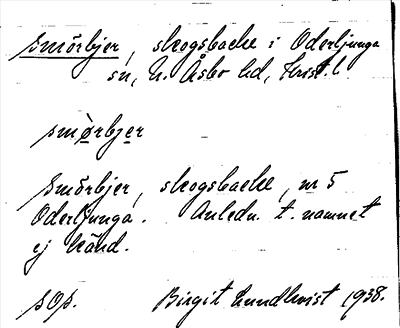 Smörbjer, skogsbacke i Oderljunga
sn, N. Åsbo hd, Krist. l.
smörbjer
Smörbjer, skogsbacke, nr 5
Oderljunga. Anledn. t. namnet
ej känd.
sop. Birgit Lundkvist 1938.